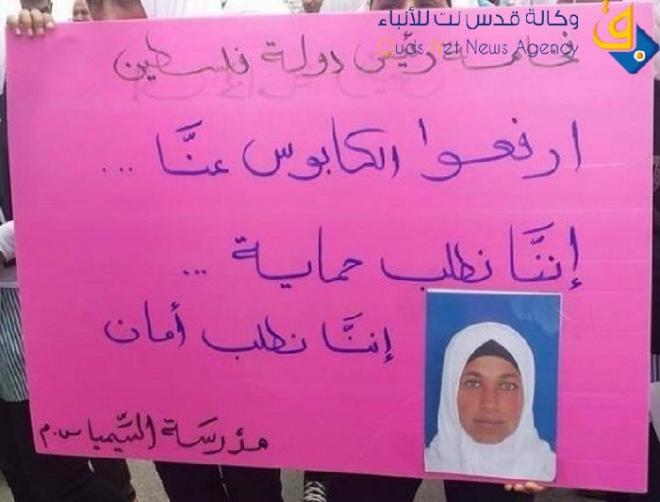 وكالة قدس نت للأنباء
Quds Net News Agency
فخامة رئيس دولة فلسطين
ارفعوا الكابوس عنَّا ...
إننَّا نطلب حماية ...
إننَّا نطلب أمان
مدرسة السِّيميا س.م